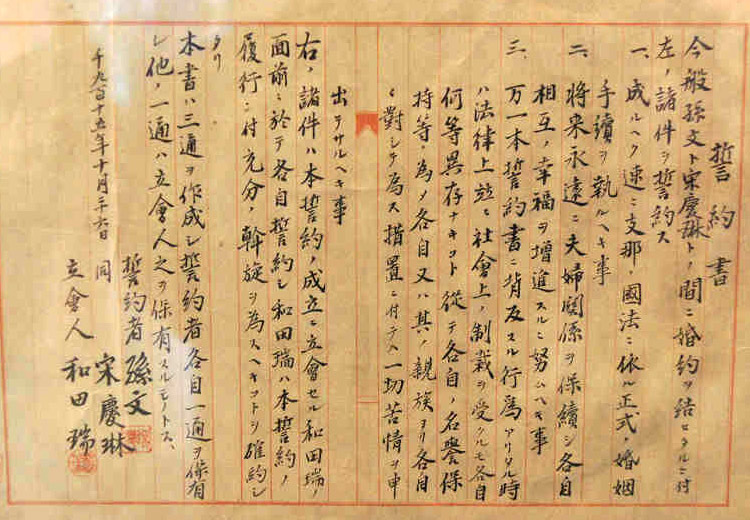 誓約書
今般孫文ト宋慶琳トノ間ニ婚約ヲ結ヒタルニ付
左ノ諸件ヲ誓約ス
一、成ルヘク速ニ支那ノ國法ニ依ル正式ノ婚姻
手續ヲ執ルヘキ事
二、將来永遠ニ夫婦関係ヲ保續シ各自
相互ノ幸福ヲ増進スルニ努ムヘキ事
三、万一本誓約書ニ背反スル行為アリタル時
ハ法律上並ニ社會上ノ制裁ヲ受クルモ各自
何等異存ナキコト従テ各自ノ名譽保
持等ノ為メ各自又ハ其ノ親族ヨリ各自
ニ對シテ為ス措置ニ付テハ一切苦情ヲ申
出テサルヘキ事
右ノ諸件ハ本誓約ノ成立ニ立會セル和田瑞ノ
面前ニ於テ各自誓約シ和田瑞ハ本誓約ノ
履行ニ付充分ノ斡旋ヲ為スヘキコトヲ確約シ
タリ
本書ハ三通ヲ作成シ誓約者各自一通ヲ保有
シ他ノ一通ハ立會人之ヲ保有スルモノトス、
誓約者 孫文
千九百十五年十月二十六日 同 宋慶琳
立會人 和田瑞